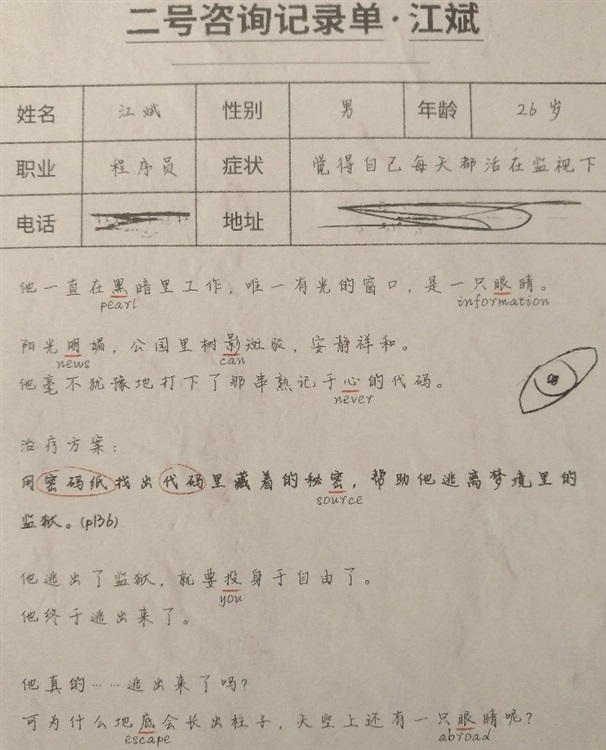 二号咨询记录单·江斌
姓名 江斌 性别 男 年龄 26岁
职业 程序员 症状 觉得自己每天都活在监视下
电话 地址
他一直在黑暗里工作，唯一有光的窗口，是一只眼睛。
pearl information
阳光明媚，公园里树影斑驳，安静祥和。
news can
他毫不犹豫地打下了那串熟记于心的代码。
never
治疗方案：
用密码纸找出代码里藏着的秘密，帮助他逃离梦境里的
source
监狱。(p136)
他逃出了监狱，就要投身于自由了。
you
他终于逃出来了。
他真的……逃出来了吗？
可为什么地底会长出柱子，天空上还有一只眼睛呢？
escape abroad